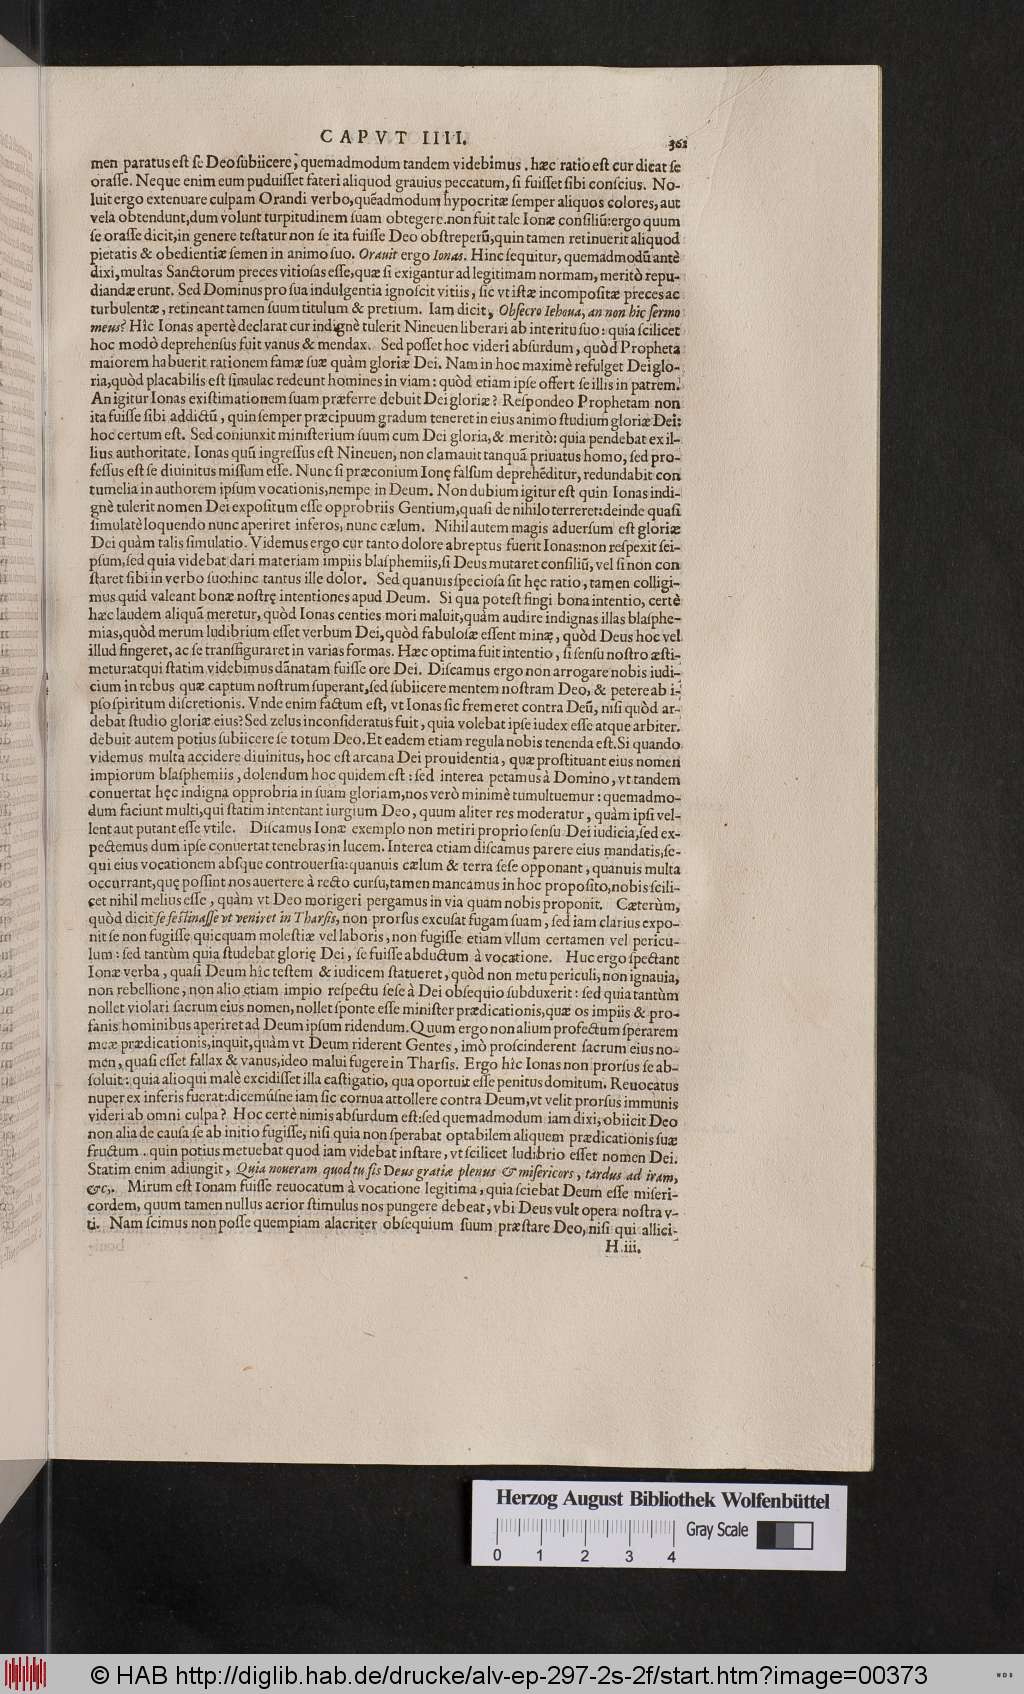 CAPVT IIII. 361
men paratus est se Deo subiicere, quemadmodum tandem videbimus. hæc ratio est cur dicat se
orasse. Neque enim eum puduisset fateri aliquod grauius peccatum, si fuisset sibi conscius. No-
luit ergo extenuare culpam Orandi verbo, quẽadmodum hypocritæ semper aliquos colores, aut
vela obtendunt, dum volunt turpitudinem suam obtegere. non fuit tale Ionæ consiliũ: ergo quum
se orasse dicit, in genere testatur non se ita fuisse Deo obstreperũ, quin tamen retinuerit aliquod
pietatis & obedientiæ semen in animo suo. Orauit ergo Ionas. Hinc sequitur, quemadmodũ antè
dixi, multas Sanctorum preces vitiosas esse, quæ si exigantur ad legitimam normam, meritò repu-
diandæ erunt. Sed Dominus pro sua indulgentia ignoscit vitiis, sic vt istæ incompositæ preces ac
turbulentæ, retineant tamen suum titulum & pretium. Iam dicit, Obsecro Iehoua, an non hic sermo
meus? Hîc Ionas apertè declarat cur indignè tulerit Nineuen liberari ab interitu suo: quia scilicet
hoc modò deprehensus fuit vanus & mendax. Sed posset hoc videri absurdum, quòd Propheta
maiorem habuerit rationem famæ suæ quàm gloriæ Dei. Nam in hoc maximè refulget Dei glo-
ria, quòd placabilis est simulac redeunt homines in viam: quòd etiam ipse offert se illis in patrem.
An igitur Ionas existimationem suam præferre debuit Dei gloriæ? Respondeo Prophetam non
ita fuisse sibi addictũ, quin semper præcipuum gradum teneret in eius animo studium gloriæ Dei:
hoc certum est. Sed coniunxit ministerium suum cum Dei gloria, & meritò: quia pendebat ex il-
lius authoritate. Ionas quũ ingressus est Nineuen, non clamauit tanquã priuatus homo, sed pro-
fessus est se diuinitus missum esse. Nunc si præconium Ionę falsum deprehẽditur, redundabit con
tumelia in authorem ipsum vocationis, nempe in Deum. Non dubium igitur est quin Ionas indi-
gnè tulerit nomen Dei expositum esse opprobriis Gentium, quasi de nihilo terreret: deinde quasi
simulatè loquendo nunc aperiret inferos, nunc cælum. Nihil autem magis aduersum est gloriæ
Dei quàm talis simulatio. Videmus ergo cur tanto dolore abreptus fuerit Ionas: non respexit sei-
psum, sed quia videbat dari materiam impiis blasphemiis, si Deus mutaret consiliũ, vel si non con
staret sibi in verbo suo: hinc tantus ille dolor. Sed quanuis speciosa sit hęc ratio, tamen colligi-
mus quid valeant bonæ nostrę intentiones apud Deum. Si qua potest fingi bona intentio, certè
hæc laudem aliquã meretur, quòd Ionas centies mori maluit, quàm audire indignas illas blasphe-
mias, quòd merum ludibrium esset verbum Dei, quòd fabulosæ essent minę, quòd Deus hoc vel
illud fingeret, ac se transfiguraret in varias formas. Hæc optima fuit intentio, si sensu nostro æsti-
metur: atqui statim videbimus dãnatam fuisse ore Dei. Discamus ergo non arrogare nobis iudi-
cium in rebus quæ captum nostrum superant, sed subiicere mentem nostram Deo, & petere ab i-
pso spiritum discretionis. Vnde enim factum est, vt Ionas sic fremeret contra Deũ, nisi quòd ar-
debat studio gloriæ eius? Sed zelus inconsideratus fuit, quia volebat ipse iudex esse atque arbiter.
debuit autem potius subiicere se totum Deo. Et eadem etiam regula nobis tenenda est. Si quando
videmus multa accidere diuinitus, hoc est arcana Dei prouidentia, quæ prostituant eius nomen
impiorum blasphemiis, dolendum hoc quidem est: sed interea petamus à Domino, vt tandem
conuertat hęc indigna opprobria in suam gloriam, nos verò minimè tumultuemur: quemadmo-
dum faciunt multi, qui statim intentant iurgium Deo, quum aliter res moderatur, quàm ipsi vel-
lent aut putant esse vtile. Discamus Ionæ exemplo non metiri proprio sensu Dei iudicia, sed ex-
pectemus dum ipse conuertat tenebras in lucem. Interea etiam discamus parere eius mandatis, se-
qui eius vocationem absque controuersia: quanuis cælum & terra sese opponant, quanuis multa
occurrant, quę possint nos auertere à recto cursu, tamen maneamus in hoc proposito, nobis scili-
cet nihil melius esse, quàm vt Deo morigeri pergamus in via quam nobis proponit. Cæterùm,
quòd dicit se festinasse vt veniret in Tharsis, non prorsus excusat fugam suam, sed iam clarius expo-
nit se non fugisse quicquam molestiæ vel laboris, non fugisse etiam vllum certamen vel pericu-
lum: sed tantùm quia studebat glorię Dei, se fuisse abductum à vocatione. Huc ergo spectant
Ionæ verba, quasi Deum hîc testem & iudicem statueret, quòd non metu periculi, non ignauia,
non rebellione, non alio etiam impio respectu sese à Dei obsequio subduxerit: sed quia tantùm
nollet violari sacrum eius nomen, nollet sponte esse minister prædicationis, quæ os impiis & pro-
fanis hominibus aperiret ad Deum ipsum ridendum. Quum ergo non alium profectum sperarem
meæ prædicationis, inquit, quàm vt Deum riderent Gentes, imò proscinderent sacrum eius no-
men, quasi esset fallax & vanus, ideo malui fugere in Tharsis. Ergo hîc Ionas non prorsus se ab-
soluit: quia alioqui malè excidisset illa castigatio, qua oportuit esse penitus domitum. Reuocatus
nuper ex inferis fuerat: dicemúsne iam sic cornua attollere contra Deum, vt velit prorsus immunis
videri ab omni culpa? Hoc certè nimis absurdum est: sed quemadmodum iam dixi, obiicit Deo
non alia de causa se ab initio fugisse, nisi quia non sperabat optabilem aliquem prædicationis suæ
fructum. quin potius metuebat quod iam videbat instare, vt scilicet ludibrio esset nomen Dei.
Statim enim adiungit, Quia noueram quod tu sis Deus gratiæ plenus & misericors, tardus ad iram,
&c,. Mirum est Ionam fuisse reuocatum à vocatione legitima, quia sciebat Deum esse miseri-
cordem, quum tamen nullus acrior stimulus nos pungere debeat, vbi Deus vult opera nostra v-
ti. Nam scimus non posse quempiam alacriter obsequium suum præstare Deo, nisi qui allici-
H.iii.
Herzog August Bibliothek Wolfenbüttel
Gray Scale
0 1 2 3 4
© HAB http://diglib.hab.de/drucke/alv-ep-297-2s-2f/start.htm?image=00373